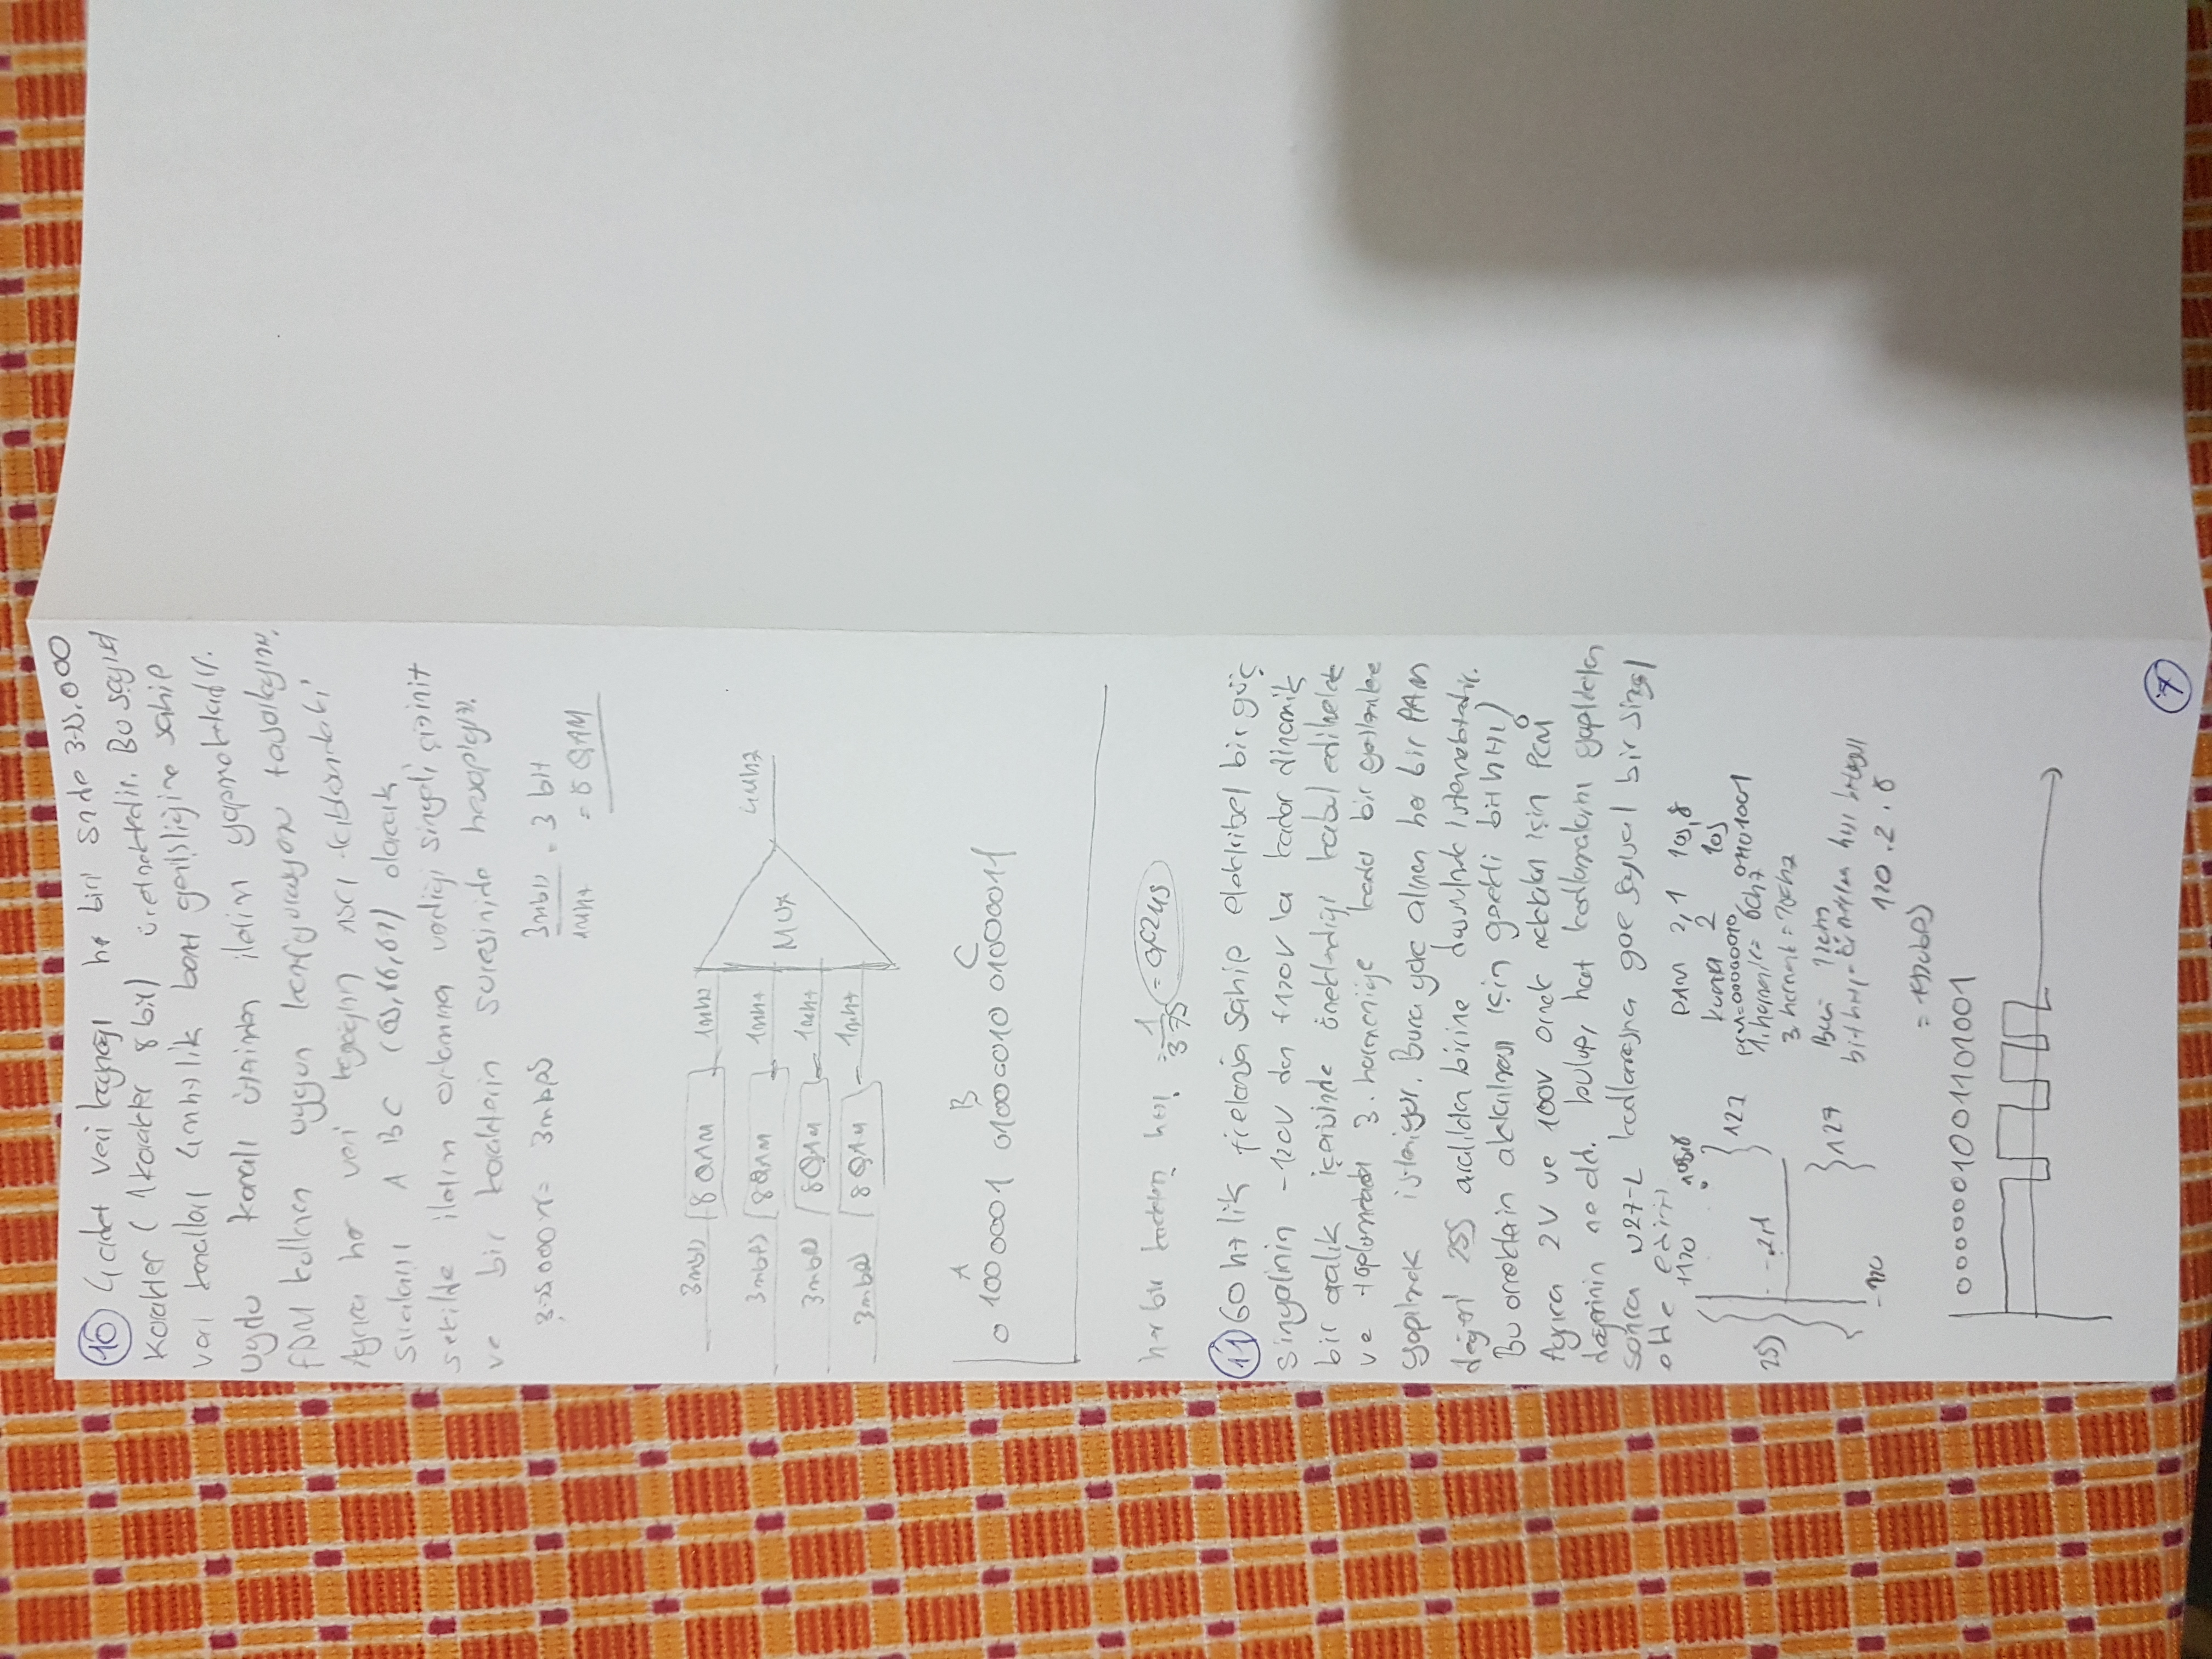 10 4 adet veri kaynağı her biri snde 375.000
karakter ( 1 karakter 8 bit) üretmektedir. Bu sayısal
veri kanalları 4mhzlik bant genişliğine sahip
uydu kanalı üzerinden iletim yapmaktadır.
FDM kullanan uygun konfigurasyonu tasarlayınız.
Ayrıca her veri kaynağının ascı tablosundaki
sıralanışı A B C (65,66,67) olacak
şekilde iletim ortamına verdiği sinyali çiziniz
ve bir karakterin suresinide hesaplayın.
375000 = 3mbps
3mbps / 1mhz = 3 bit
= 8 QAM
3mbps 8 QAM 1mhz
3mbps 8QAM 1mhz
MUX 4Mhz
3mbps 8QAM 1mhz
3mbps 8QAM 1mhz
A B C
0 1000001 01000010 01000011
her bir karakterin hızı = 1/375 =
11 60 hz lik frekansa sahip elektriksel bir güç
sinyalinin -120V dan +120V la kadar dinamik
bir aralık içerisinde örneklendiği kabul edilerek
ve toplamdaki 3. harmoniğe kadar bir
yapılmak isteniyor. Buna göre alınan her bir PAM
değeri 255 aralıktan birine istenmektedir.
Bu orneklerin aktarılması için gerekli bit hızı?
Ayrıca 2V ve 100V ornek noktaları için PCM
değerinin ne old. bulup, hat kodlamalarını yaptıktan
sonra NRZ-L kodlamasına gore sayısal bir sinyal
elde ediniz
+120 105,8 PAM 2,1 105,8
127 kuanta 2 105
pcm=00000010 01101001
255 -2,1 1. harmonik= 60hz
3. harmonik =
127 120hz
bit hızı=
-120 120.2.8
= 1920bps
0000001001101001
7